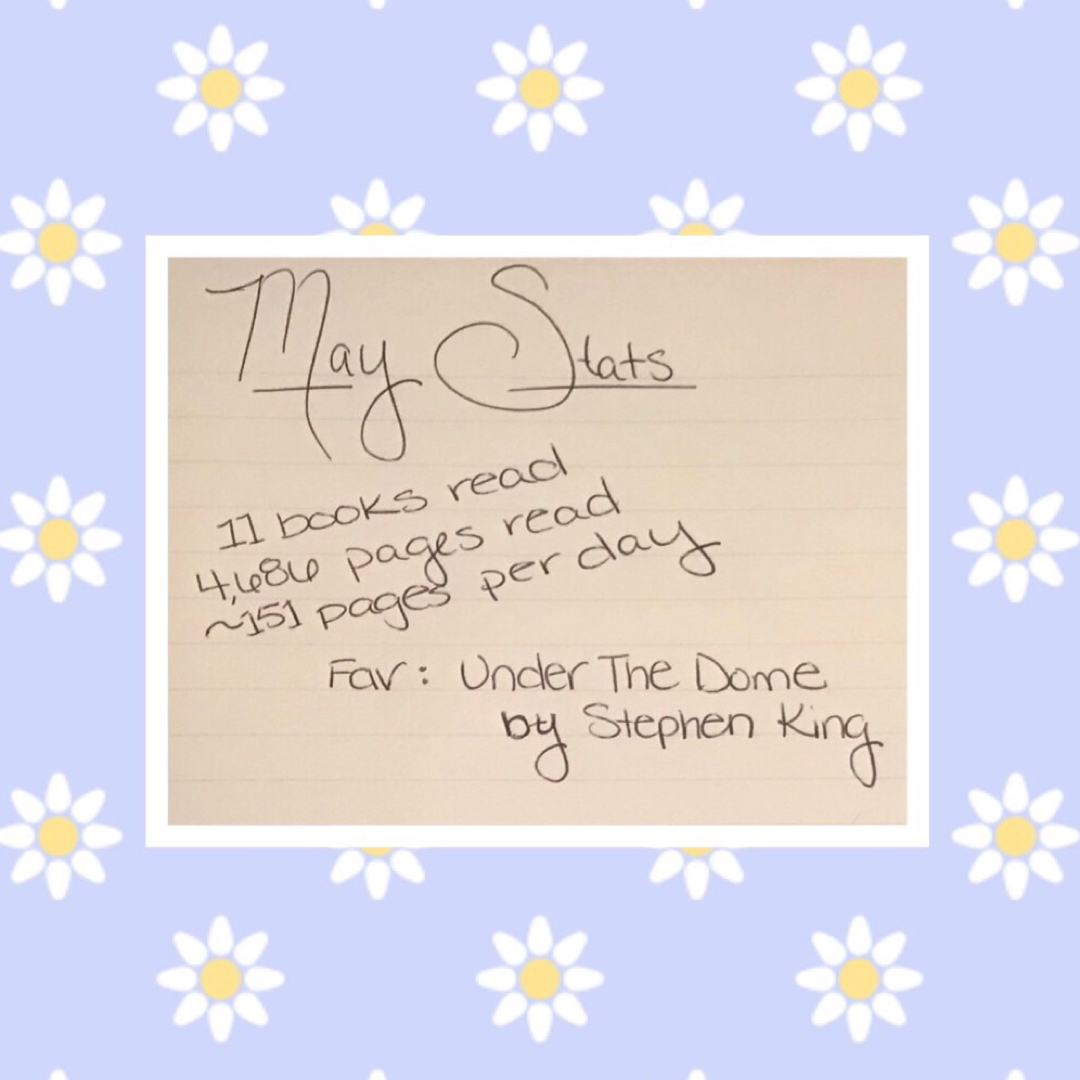 May Stats
11 books read
4,686 pages read
~151 pages per day
Fav: Under The Dome
by Stephen King